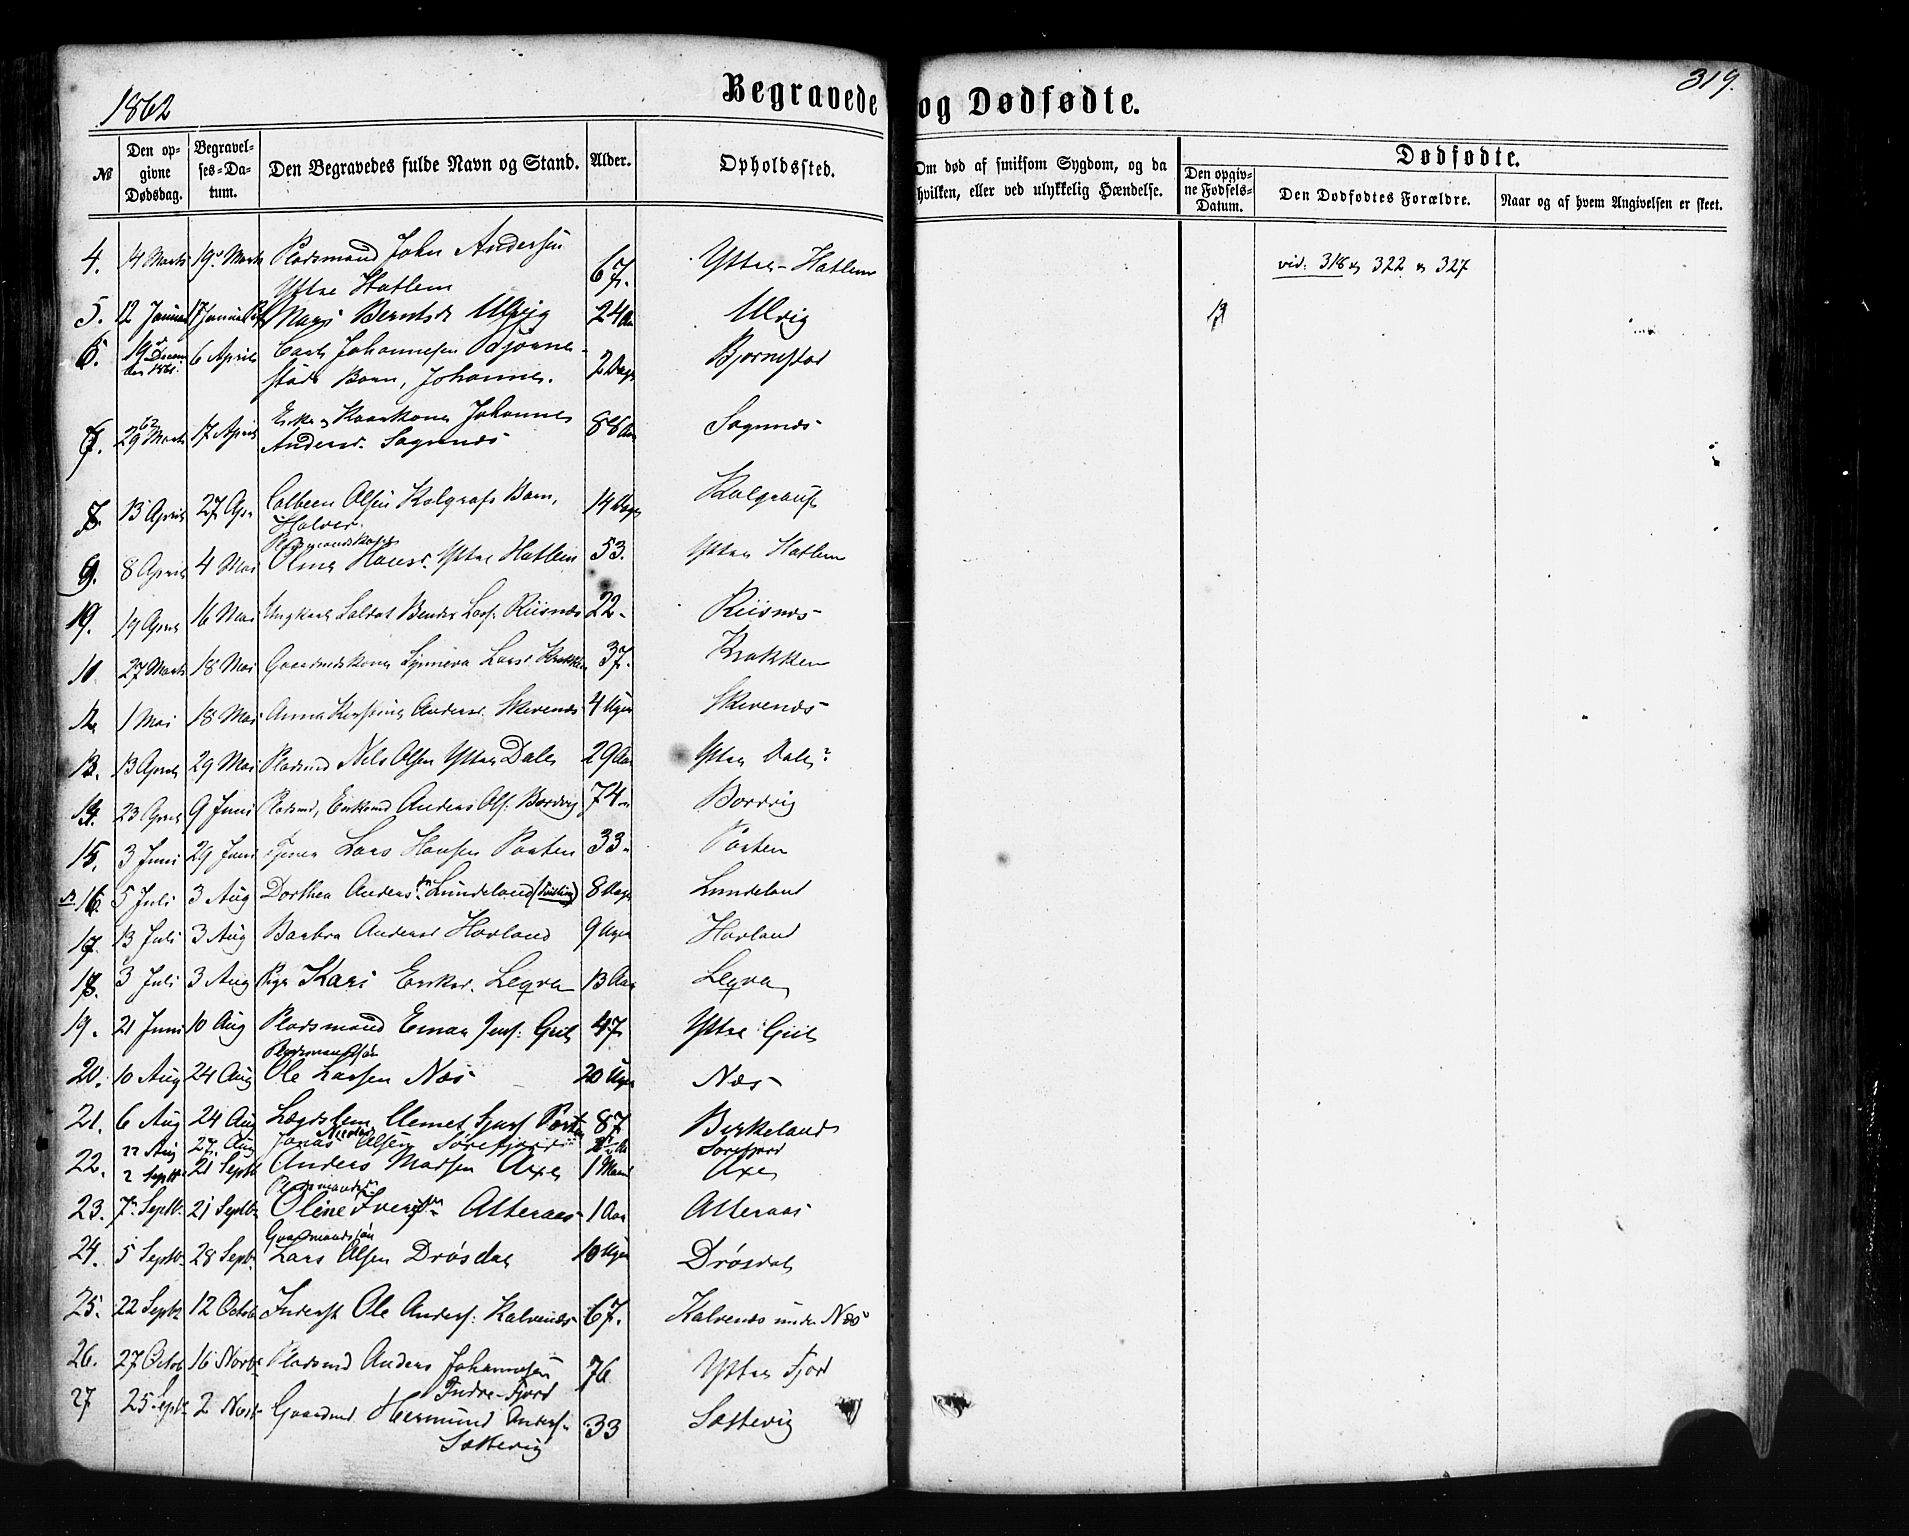 1862
Begravede og Dødfødte.
319.
№
Den opgivne Dødsdag.
Begravelses-Datum.
Den Begravedes fulde Navn og Stand.
Alder.
Opholdssted.
Om død af smitsom Sygdom, og da hvilken, eller ved ulykkelig Hændelse.
Dødfødte.
Den opgivne Fødsels-Datum.
Den Dødfødtes Forældre.
Naar og af hvem Angivelsen er skeet.
4. 14 Marts 19 Marts Pladsmand John Andersen Yttre Hatlem 67. Yttre-Hatlem
vid: 318 og 322 og 327
5. 12 Januar 17 Januar Berntsd. Ulvig 24 Aar Ulvig
6. 19 Decem ber 1861. 6 April Johannesen Bjørnestads Barn, Johannes. 2 Dage Bjørnestad
7. 29 Marts 17 April Enke Johanne Andersd. Sognnæs 88 Aar Sognnæs
8. 13 April 27 Apr Colbeen Olsen Kolgrafs Barn, Halvor. 14 Dage Kolgraf
9. 8 April 4 Mai Pladsmandskone Hansd. Yttre Hatlem 53. Yttre Hatlem
19 April 16 Mai Ungkarl Soldat Larss. Riisnæs 22. Riisnæs
27 Marts 18 Mai Gaardmdskone Synneva Larsd. Krakken 37. Krakken
12. 1 Mai 18 Mai Anna Kirstine Andersd. Skivenæs 4 Uger Skivenæs
13. 13 April 29 Mai Pladsmd Nels Olsen Yttre Dale 29 Aar Yttre Dale
14. 23 April 9 Juni Pladsmd, Enkemd Anders Ols. Bordvig 74 Bordvig
15. 3 Juni 29 Juni Lars Hansen Porten 33 Porten
16. 5 Juli 3 Aug Dorthea Andersd. Lundeland 8 Dage Lundeland
17. 13 Juli 3 Aug Barbra Andersd Hovland 9 Uger Hovland
18. 3 Juli 3 Aug Pige Kari Leqva 13 Aar Leqva
19. 21 Juni 10 Aug Pladsmand Jens: 47 Yttre
20. 10 Aug 24 Aug Pladsmandssøn Ole Larsen Næs 20 Uger Næs
21. 6 Aug 24 Aug Lægdslem Clemet 87 Birkeland
22 Aug 27 Aug Jonas Olsen Sørefjorden Sørefjord
22. 2 Septbr 21 Septbr Anders Madsen Axe 1 Maaned Axe
23. 7 Septbr. 21 Septbr. Oline Alteraas 1 Aar Alteraas
24. 5 Septbr. 28 Septbr. Gaardmandssøn Lars Olsen Drøsdal 10 Uger Drøsdal
25. 22 Septbr 12 Octob Inderst Ole Anders: Kalvenæs 67. Kalvenæs under Næs
26. 27 Octob 16 Novbr Pladsmd Anders Johannesen Indre-Fjord 76 Yttre Fjord
27 25 Septbr 2 Novbr Gaardmd Hermund Anders. Sættevig 33 Sættevig